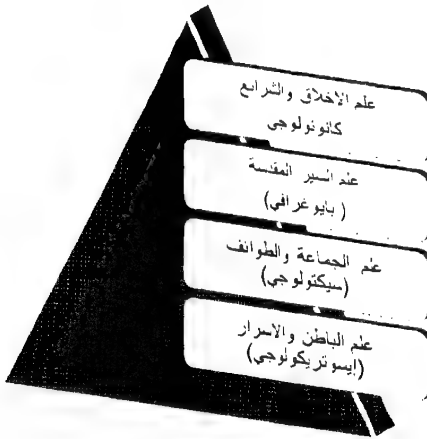 علم الاخلاق والشرايع
كانونولوجي
علم السير المقدسة
( بايوغرافي)
علم الجماعة والطوائف
(سيكتولوجي)
علم الباطن والاسرار
(إيسوتريكولوجي)